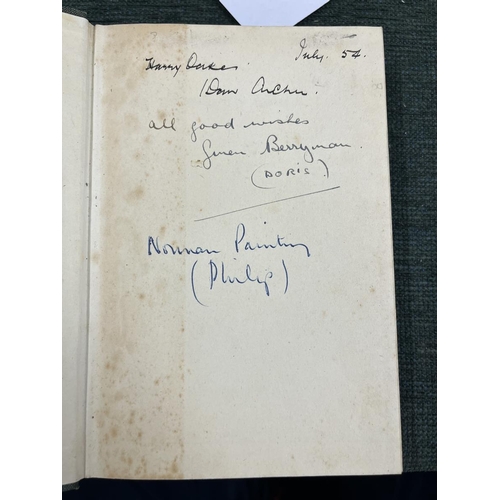 Harry Oakes. July. 54.
Dan Archer.
all good wishes
Gwen Berryman.
(DORIS.)
Norman Painting
(Philip)